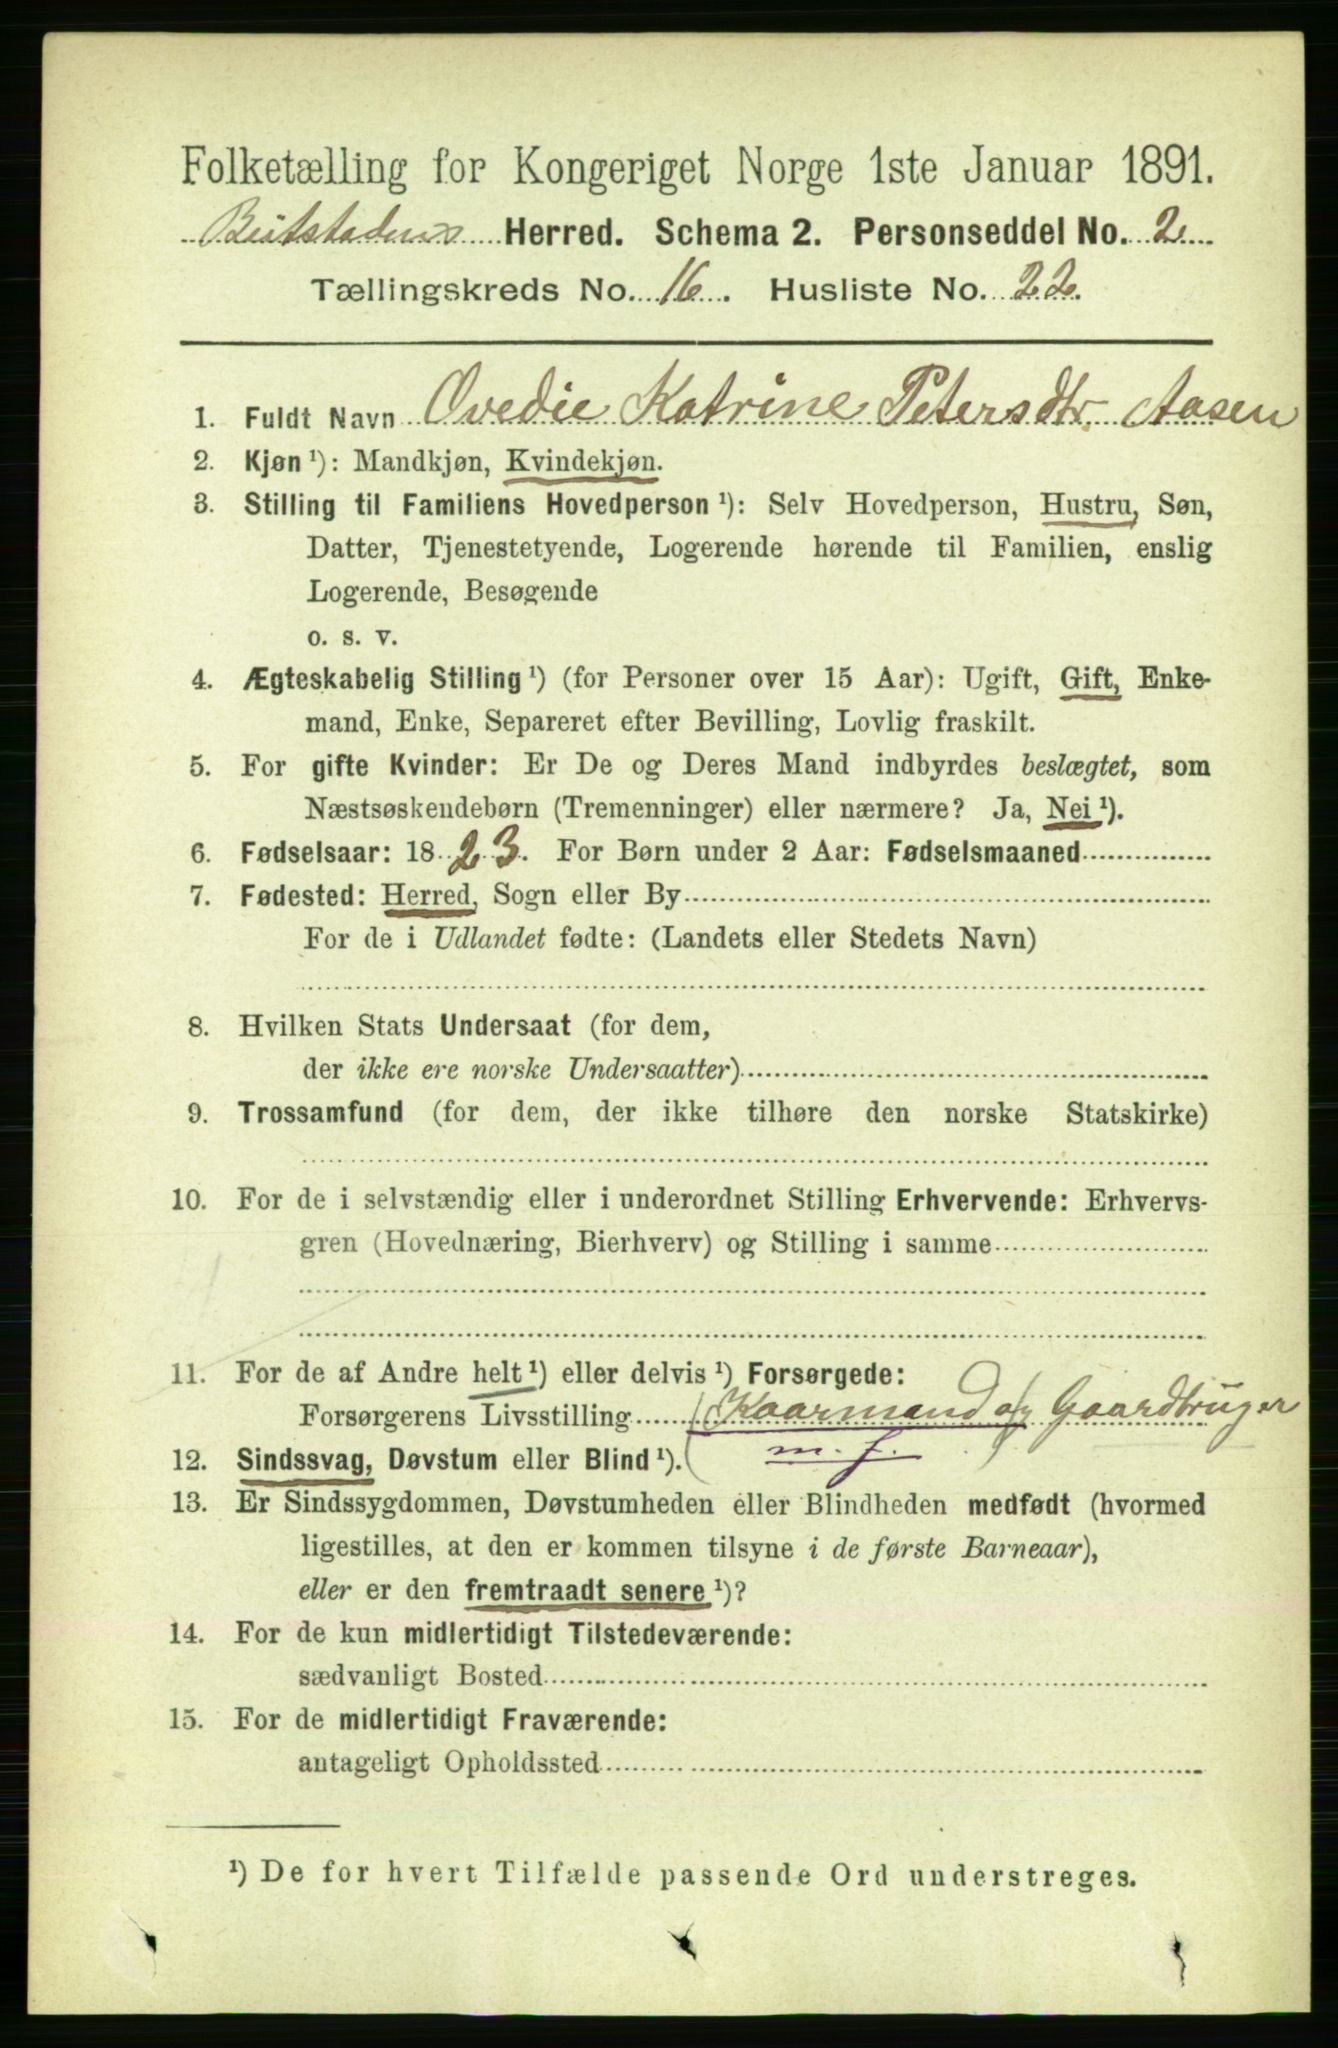 Folketælling for Kongeriget Norge 1ste Januar 1891.
Beitstadens Herred. Schema 2. Personseddel No. 2
Tællingskreds No. 16. Husliste No. 22.
1. Fuldt Navn Ovedie Katrine Petersdtr. Aasen
2. Kjøn ¹): Mandkjøn, Kvindekjøn.
3. Stilling til Familiens Hovedperson ¹): Selv Hovedperson, Hustru, Søn,
Datter, Tjenestetyende, Logerende hørende til Familien, enslig
Logerende, Besøgende
o. s. v.
4. Ægteskabelig Stilling ¹) (for Personer over 15 Aar): Ugift, Gift, Enke-
mand, Enke, Separeret efter Bevilling, Lovlig fraskilt.
5. For gifte Kvinder: Er De og Deres Mand indbyrdes beslægtet, som
Næstsøskendebørn (Tremenninger) eller nærmere? Ja, Nei ¹).
6. Fødselsaar: 1823. For Børn under 2 Aar: Fødselsmaaned
7. Fødested: Herred, Sogn eller By
For de i Udlandet fødte: (Landets eller Stedets Navn)
8. Hvilken Stats Undersaat (for dem,
der ikke ere norske Undersaatter)
9. Trossamfund (for dem, der ikke tilhøre den norske Statskirke)
10. For de i selvstændig eller i underordnet Stilling Erhvervende: Erhvervs-
gren (Hovednæring, Bierhverv) og Stilling i samme
11. For de af Andre helt ¹) eller delvis ¹) Forsørgede:
Forsørgerens Livsstilling (Kaarmand og Gaardbruger
12. Sindssvag, Døvstum eller Blind ¹). ( m. f.
13. Er Sindssygdommen, Døvstumheden eller Blindheden medfødt (hvormed
ligestilles, at den er kommen tilsyne i de første Barneaar),
eller er den fremtraadt senere ¹)?
14. For de kun midlertidigt Tilstedeværende:
sædvanligt Bosted
15. For de midlertidigt Fraværende:
antageligt Opholdssted
¹) De for hvert Tilfælde passende Ord understreges.